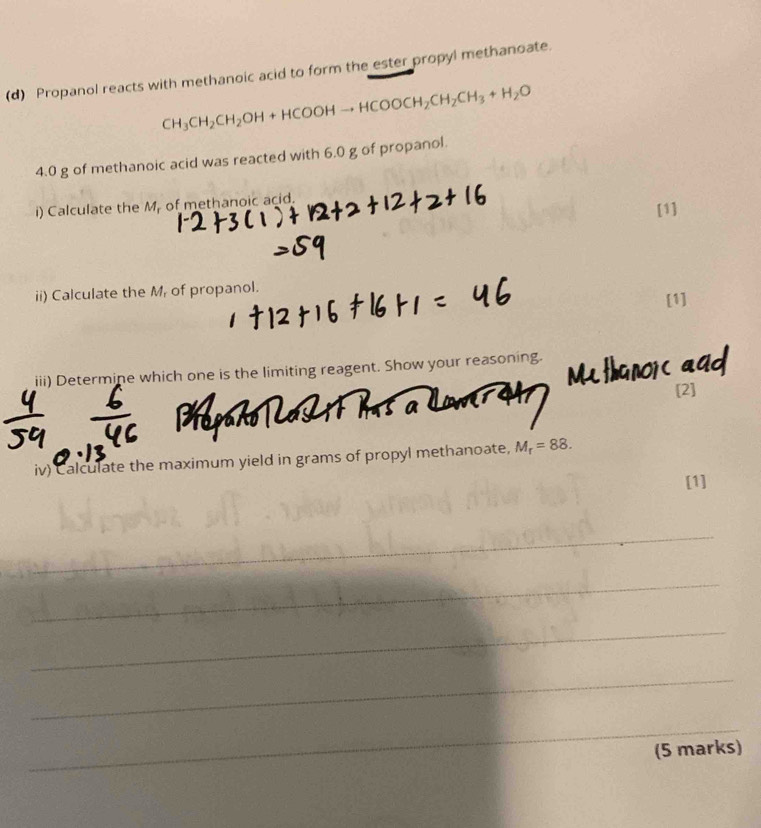 (d) Propanol reacts with methanoic acid to form the ester propyl methanoate.
CH₃CH₂CH₂OH + HCOOH → HCOOCH₂CH₂CH₃ + H₂O
4.0 g of methanoic acid was reacted with 6.0 g of propanol.
i) Calculate the Mᵣ of methanoic acid.
12+3(1)+12+2+12+2+16
[1]
=59
ii) Calculate the Mᵣ of propanol.
1+12+16+16+1 = 46
[1]
iii) Determine which one is the limiting reagent. Show your reasoning.
Methanoic acid
[2]
4/59 6/46
0.13
has a
iv) Calculate the maximum yield in grams of propyl methanoate, Mᵣ = 88.
[1]
(5 marks)